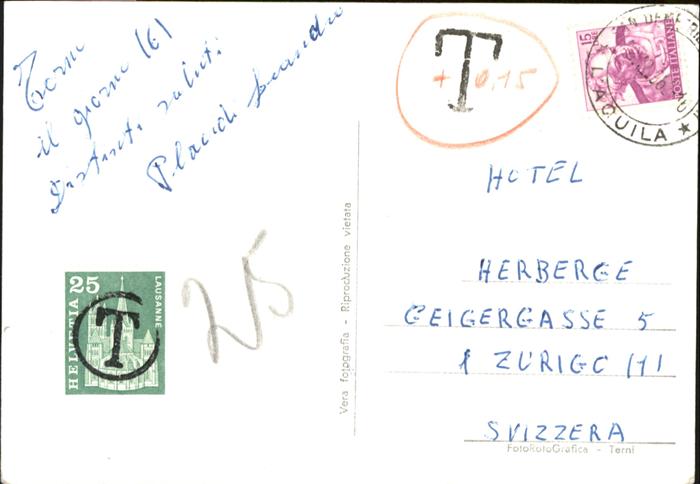 Torno
il giorno 16
Distinti saluti
Placidi Leandro
T
+ 0,15
15
POSTE ITALIANE
L'AQUILA ★
HOTEL
HERBERGE
GEIGERGASSE 5
1 ZÜRIGO (1)
SVIZZERA
25
HELVETIA
LAUSANNE
T
25
Vera fotografia - Riproduzione vietata
FotoRotoGrafica - Terni